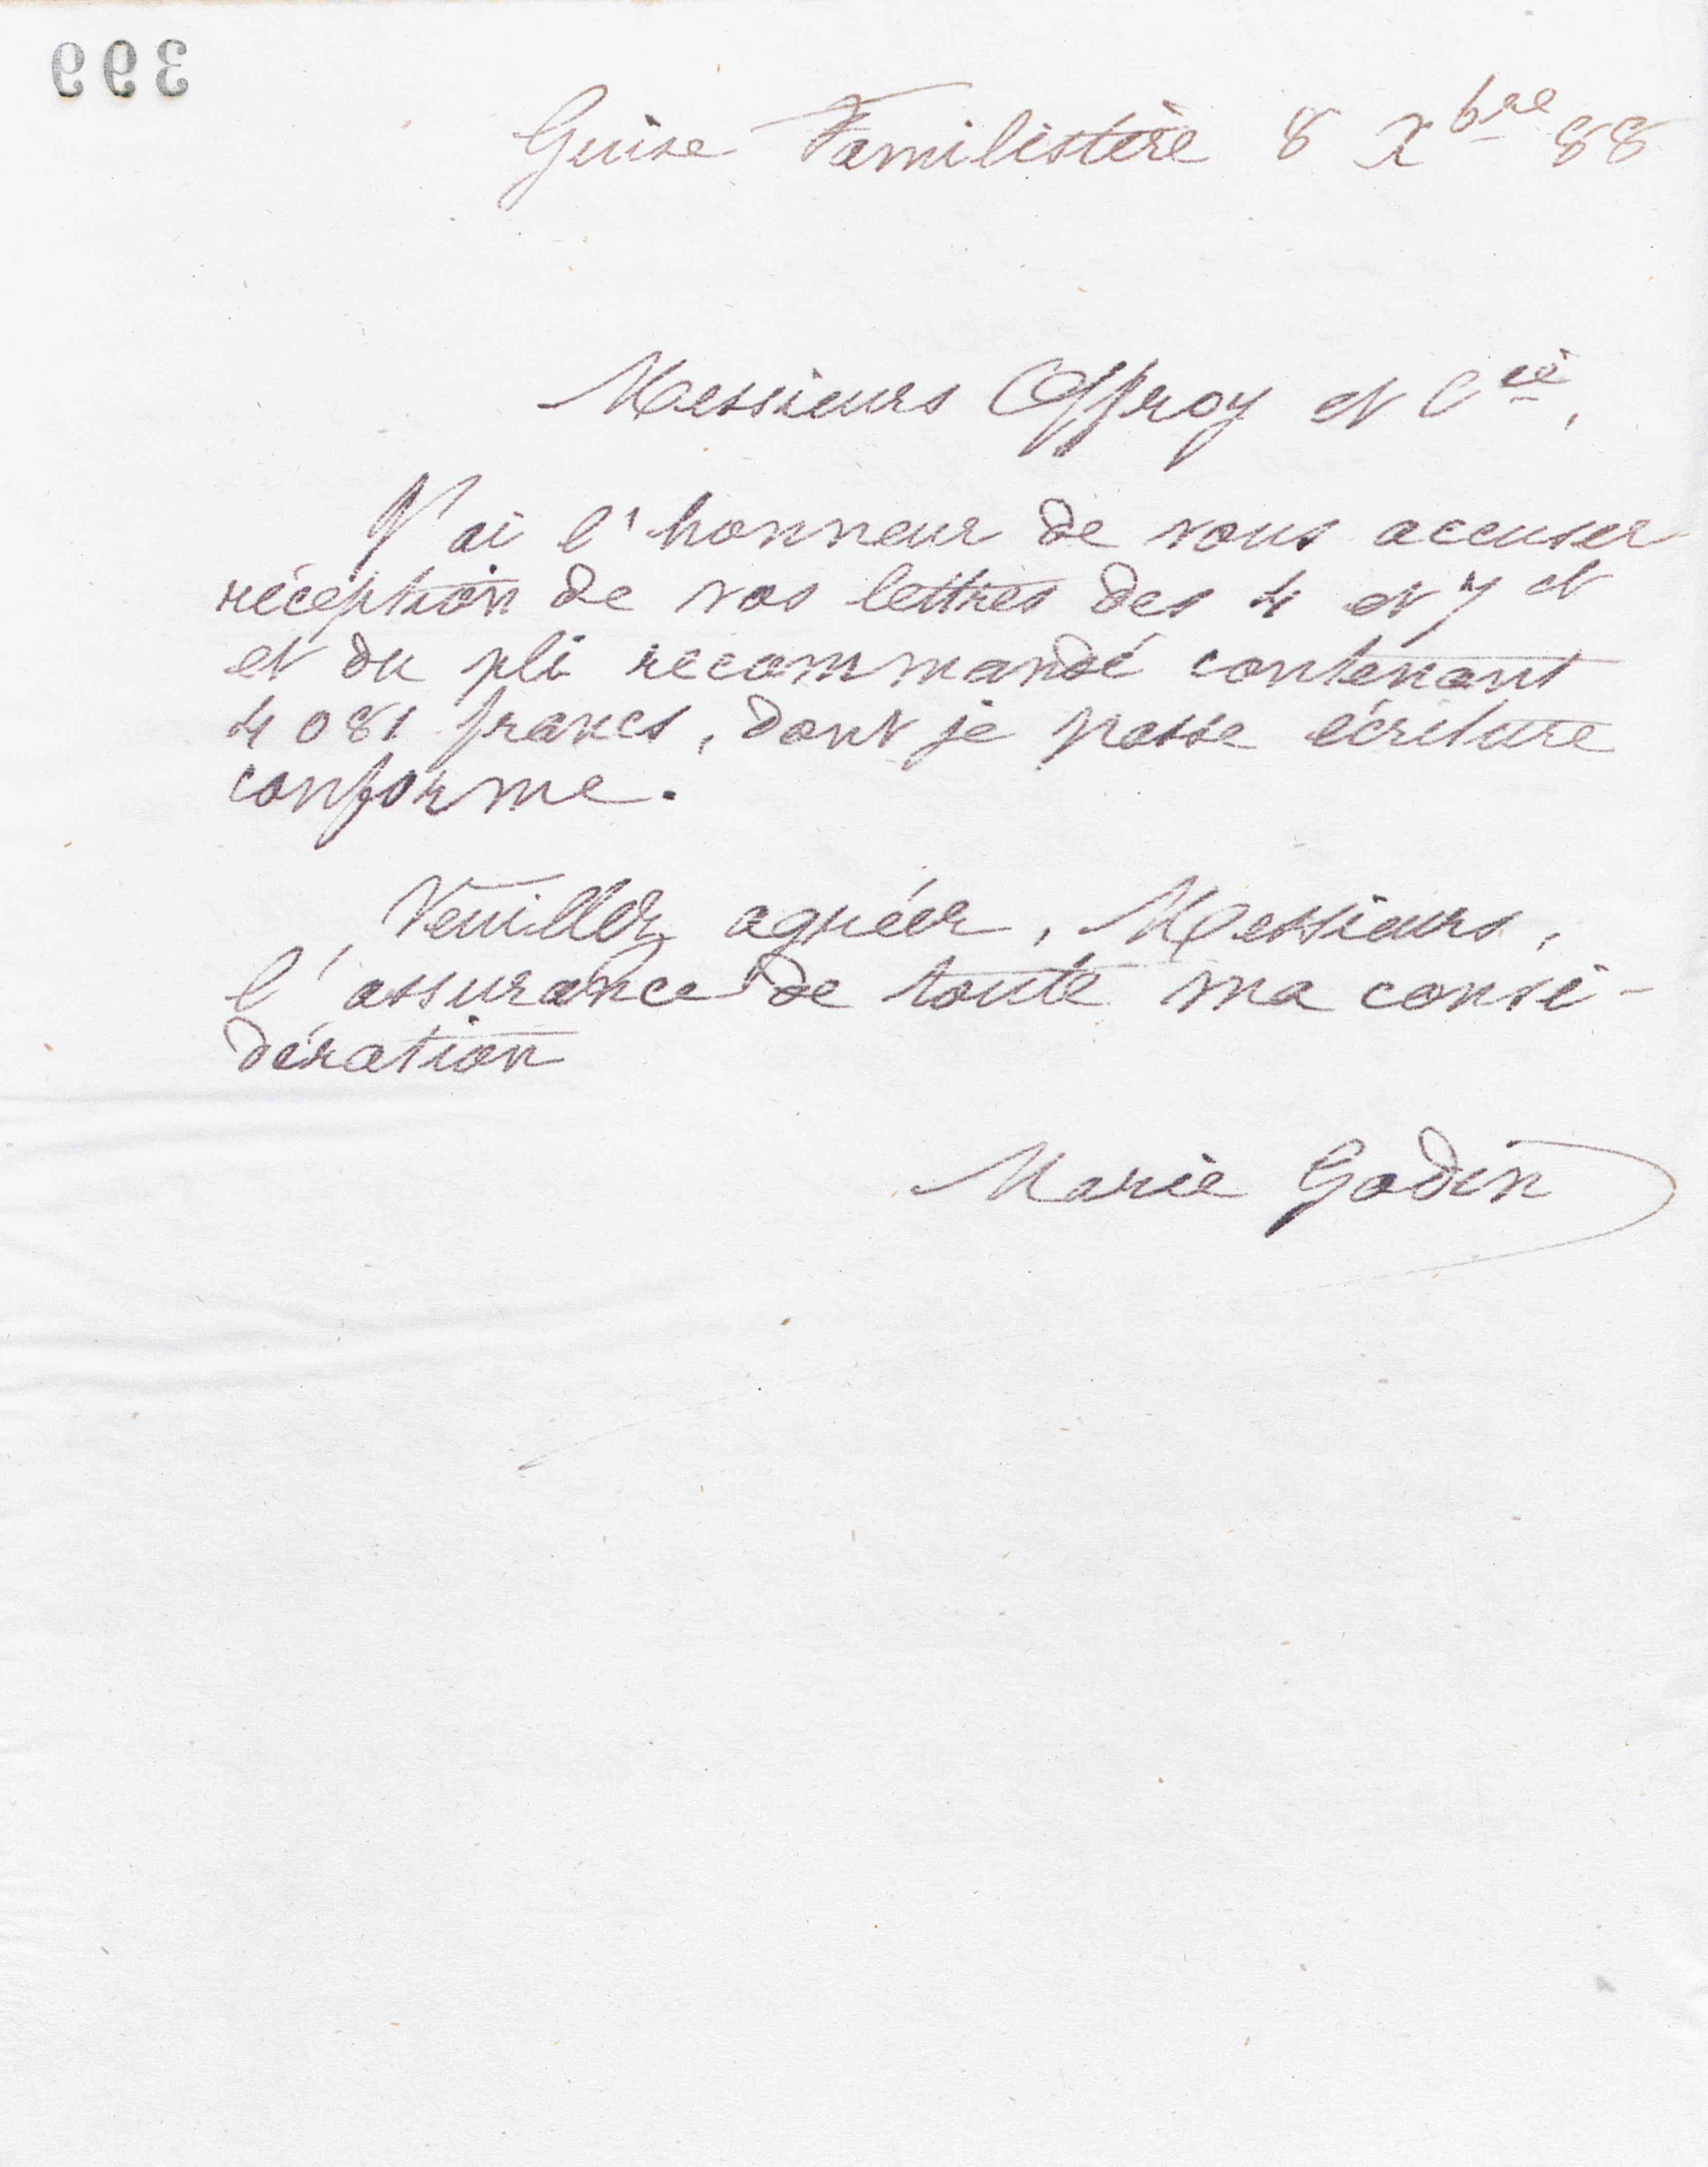 399
Guise Familistère 8 Xbre 88
Messieurs Offroy et Cie,
J'ai l'honneur de vous accuser
réception de vos lettres des 4 et 7 ct
et du pli recommandé contenant
4 081 francs, dont je passe écriture
conforme.
Veuillez agréer, Messieurs,
l'assurance de toute ma consi-
dération
Marie Godin